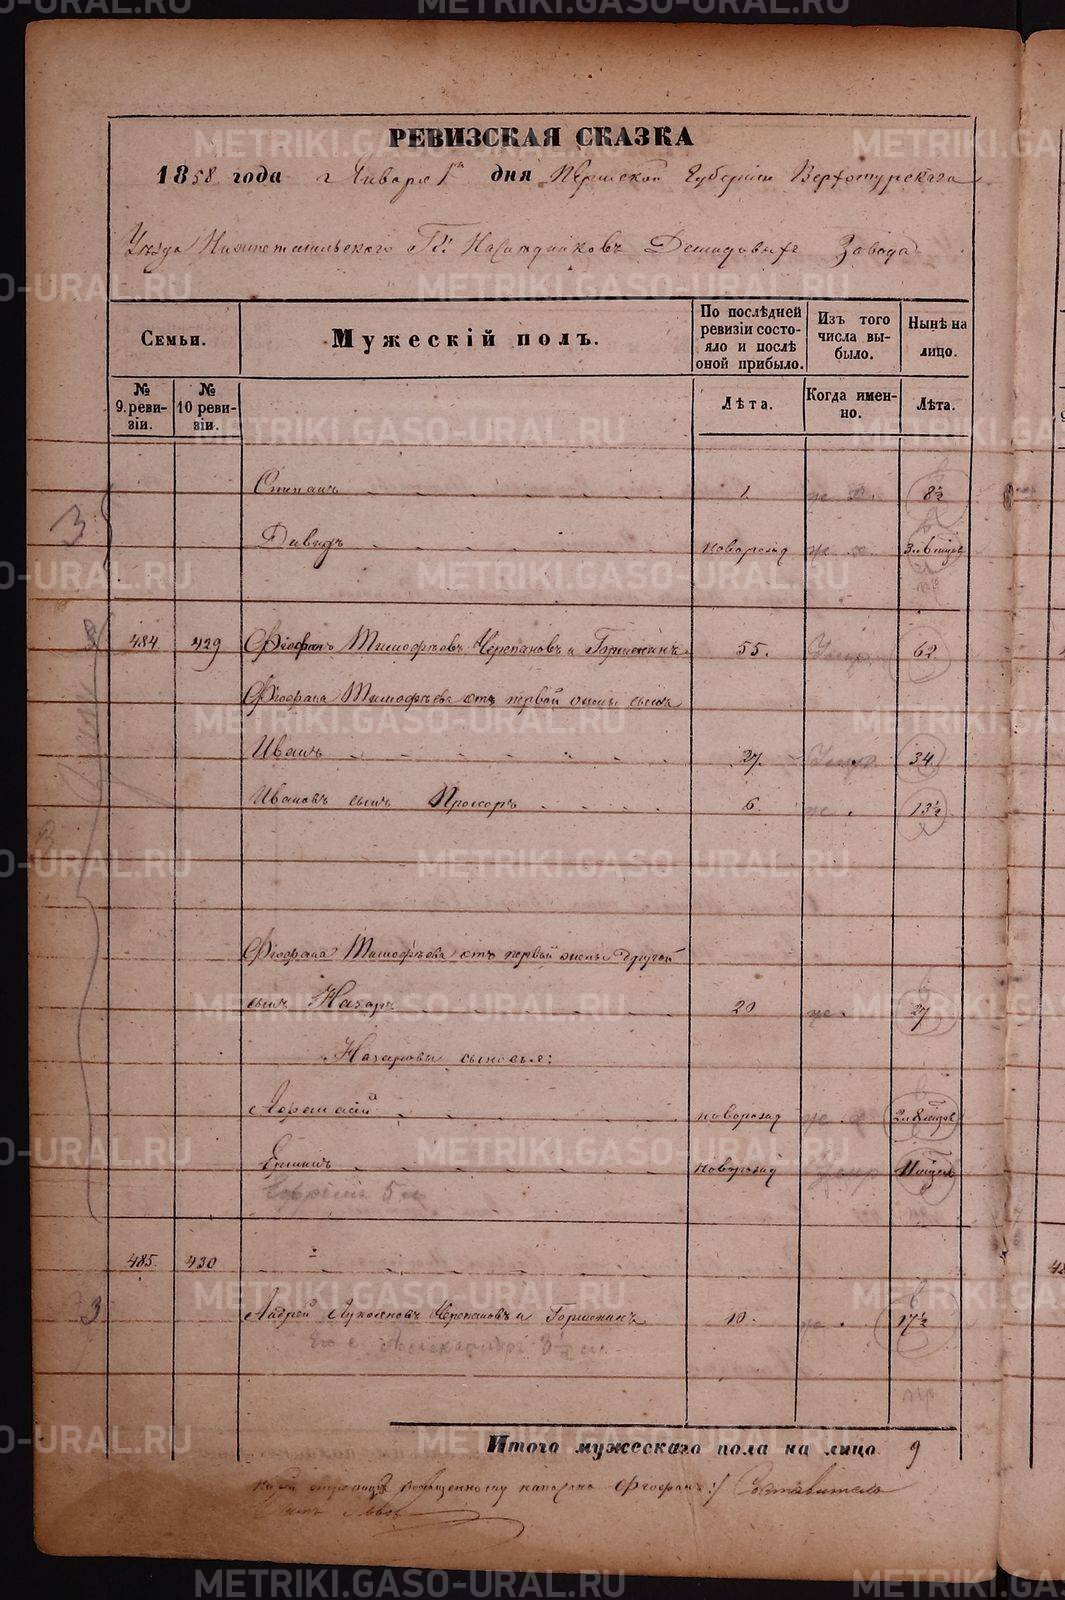 РЕВИЗСКАЯ СКАЗКА
1858 года Января 1го дня Пермской Губернии Верхотурскаго
Уезда Нижнетагильскаго Гг. Наследниковъ Демидовыхъ Завода
Семьи. Мужескій полъ. По послѣдней ревизіи состояло и послѣ оной прибыло. Изъ того числа выбыло. Нынѣ на лицо.
№ 9. ревизіи. № 10 ревизіи. Лѣта. Когда именно. Лѣта.
Степанъ 1. 8½
3 Давидъ новорожд 3л 6 мцвъ
484 429 Өеофанъ Тимофѣевъ Черепановъ и Горшенинъ 55. Умеръ 62
Өеофана Тимофѣева отъ первой жены сынъ
Иванъ 27. Умеръ 34
Ивановъ сынъ Прохоръ 6. ж. 13½
Өеофана Тимофѣева отъ первой жены другой
сынъ Назаръ 20 ж. 27
Назаровы сыновья:
новорожд 2л 8 мцвъ
новорожд Умер 11 недель
5 л
485. 430
3 Андрей Черепановъ и Горшенинъ 10. ж. 17½
Его с. Александръ 3½ л.
пр
Итого мужескаго пола на лицо 9
На сей странице по написано Өеофанъ :/ Составитель
METRIKI.GASO-URAL.RU